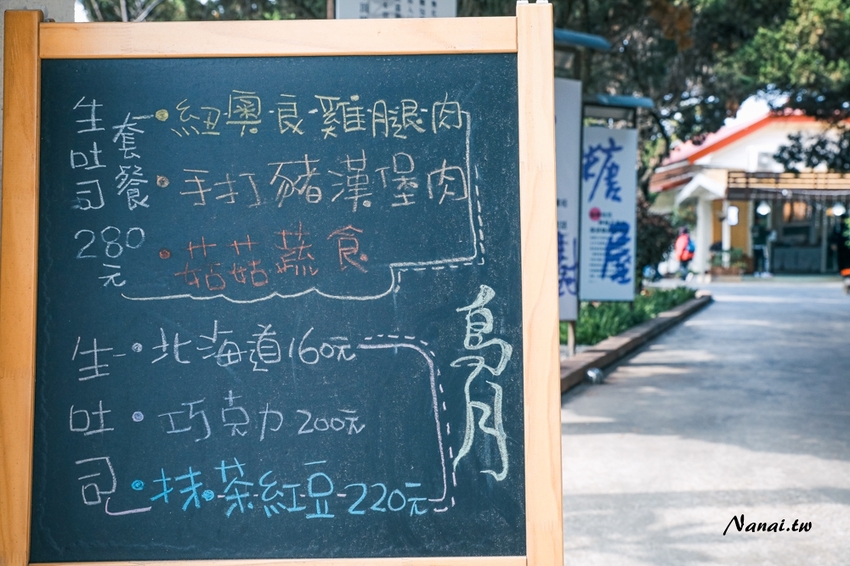 生吐司套餐
280元
紐奧良雞腿肉
手打豬漢堡肉
菇菇蔬食
生吐司
北海道160元
巧克力200元
抹茶紅豆220元
島月
糖屋
Nanai.tw